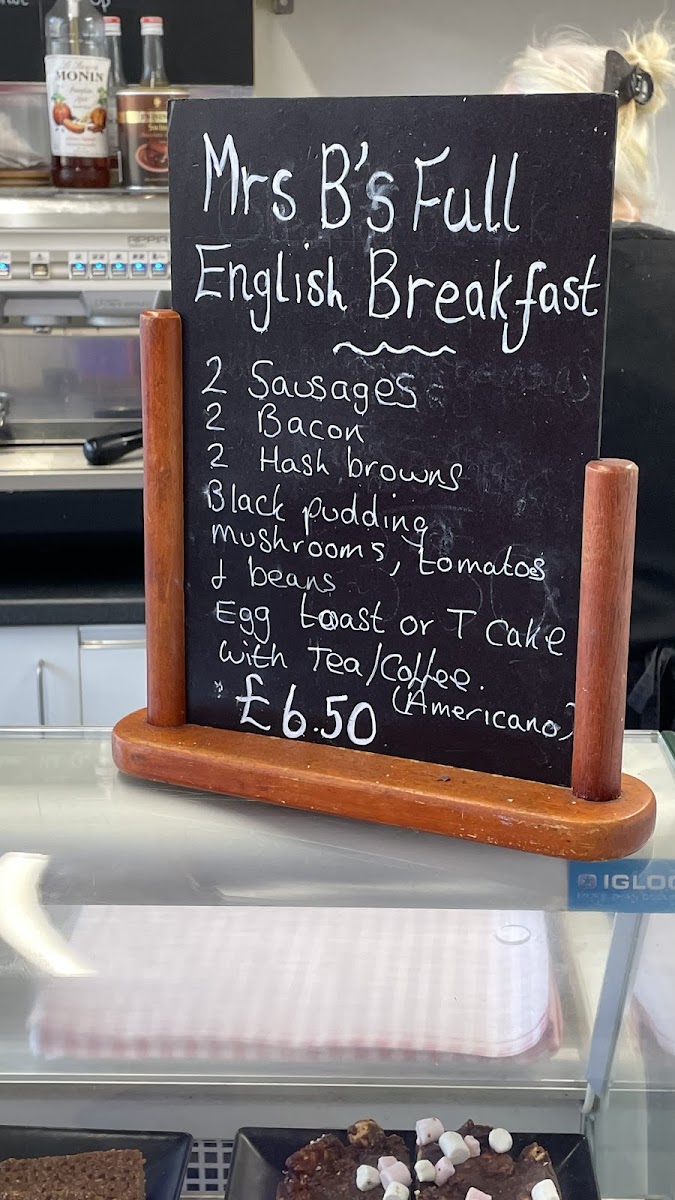 MONIN
Mrs B's Full
English Breakfast
2 Sausages
2 Bacon
2 Hash browns
Black pudding
mushrooms, tomatos
& beans
Egg toast or T Cake
with Tea/Coffee.
(Americano)
£6.50
IGLOO